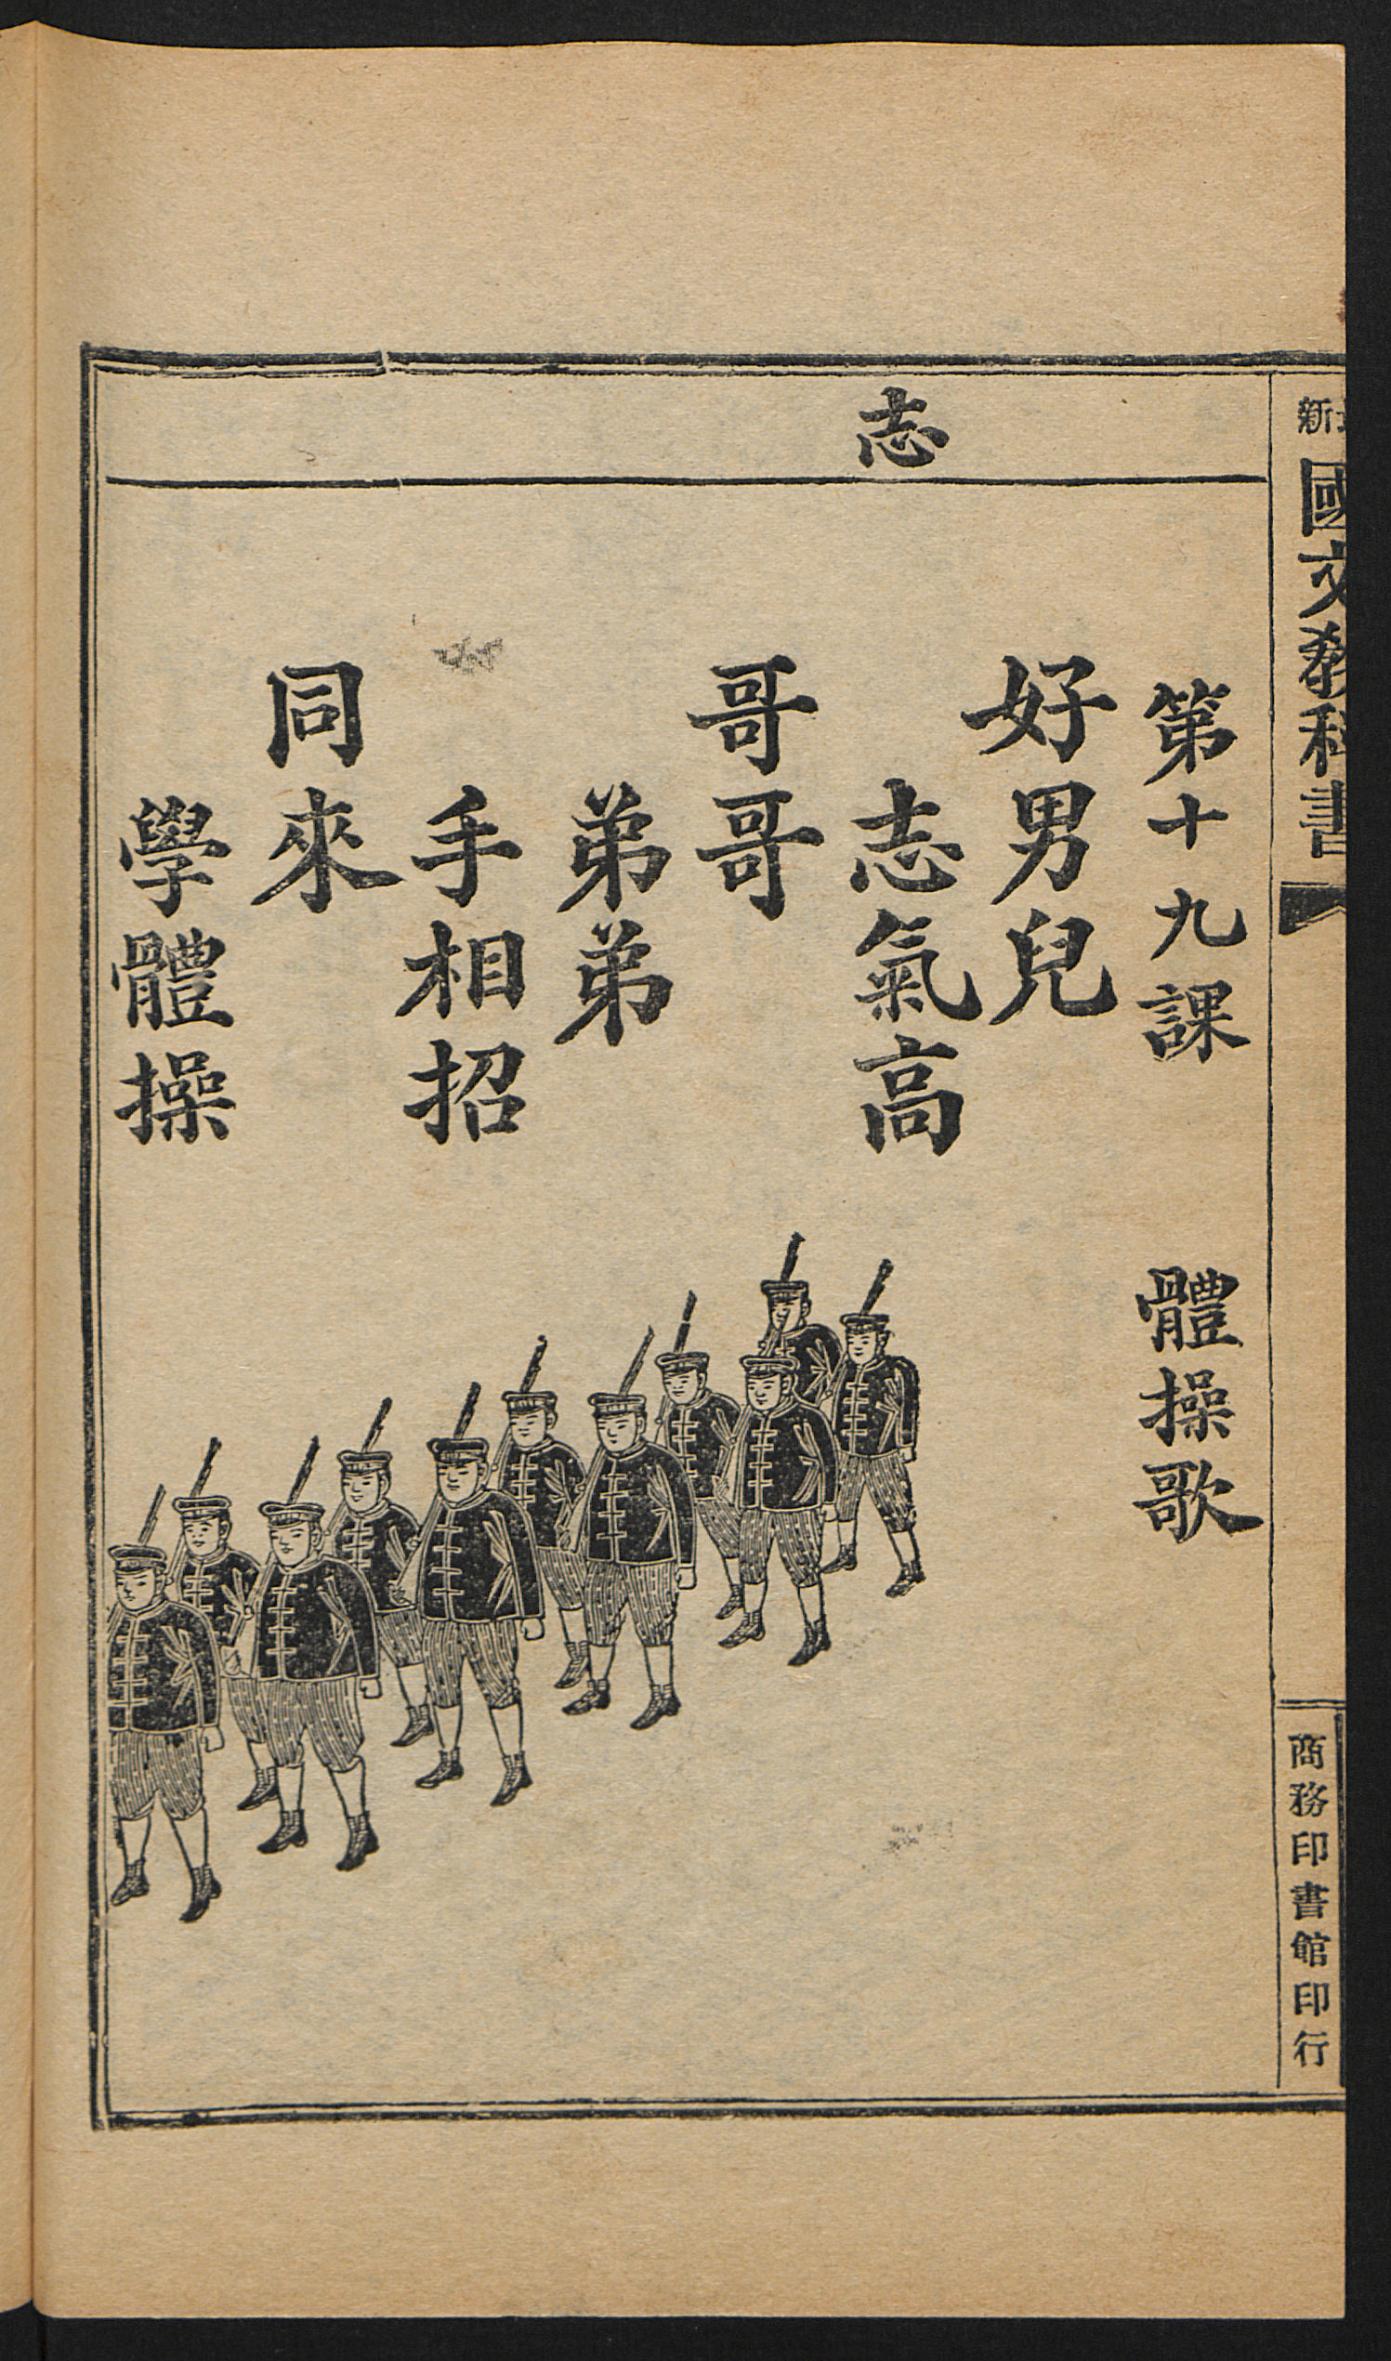 新
國文教科書
商務印書館印行
志
第十九課 體操歌
好男兒
志氣高
哥哥
弟弟
手相招
同來
學體操